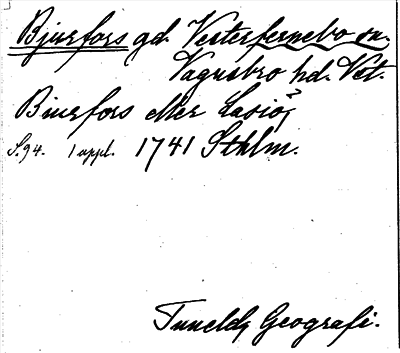 Bjurfors gd. Vesterfernebo sn.
Vagnsbro hd. Vst.
Biurfors eller Lasiö?
S. 94. 1 uppl. 1741 Sthlm.
Tunelds Geografi.